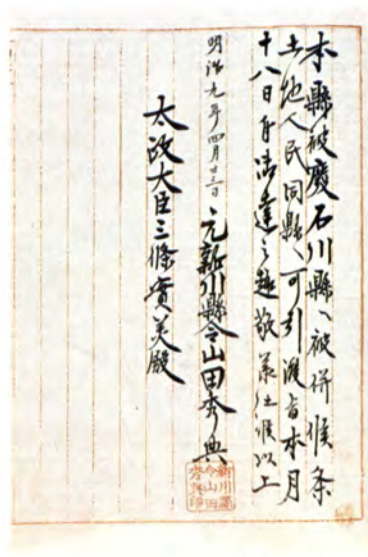 本縣被廢石川縣ヘ被併候条
土地人民同縣ヘ可引渡旨本月
十八日付御達之趣敬承仕候以上
明治九年四月廿三日
元新川縣令山田秀典
太政大臣三條實美殿
新川縣
令山田
秀典印